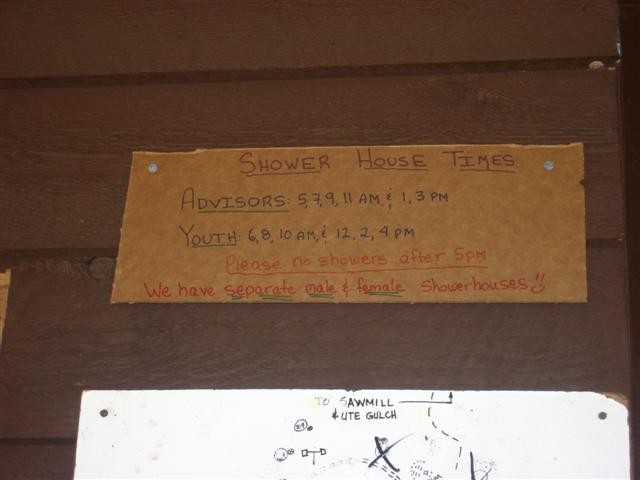 SHOWER HOUSE TIMES
ADVISORS: 5,7,9,11 AM & 1,3 PM
YOUTH: 6,8,10 AM, & 12,2,4 PM
Please no showers after 5pm
We have separate male & female showerhouses!!
TO SAWMILL
& UTE GULCH